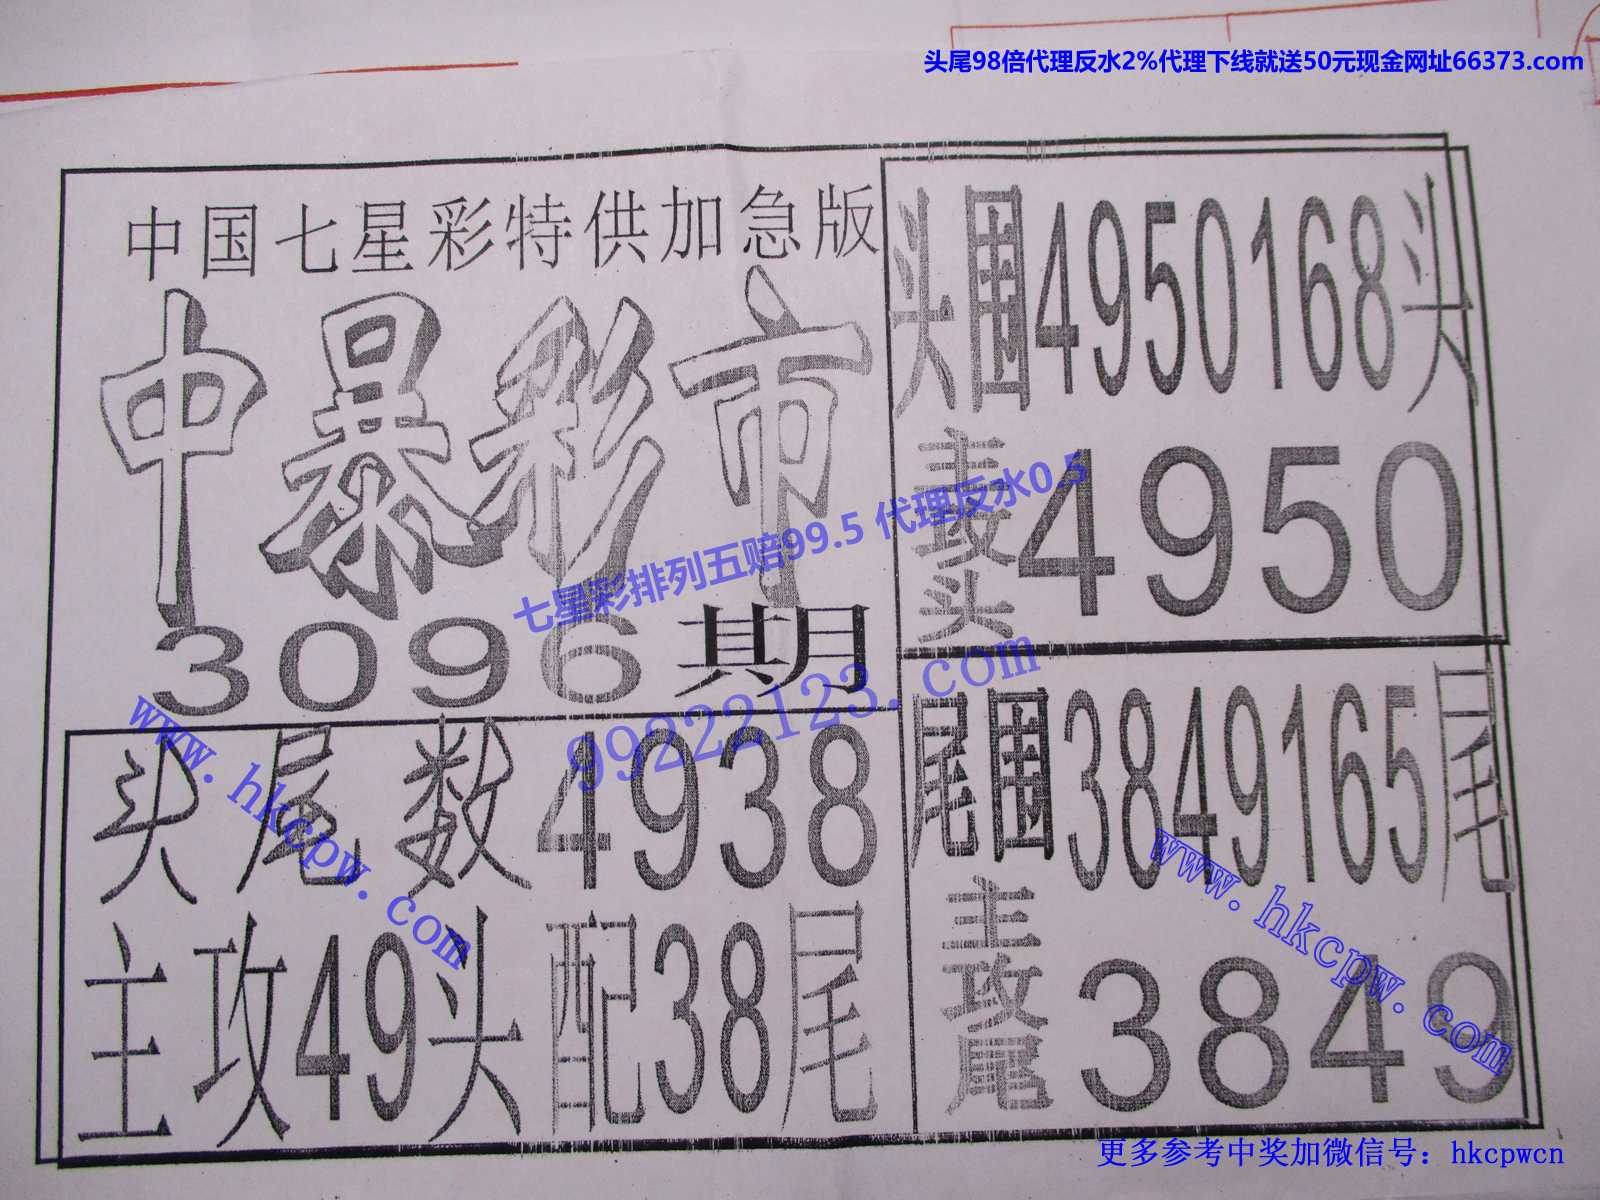 头尾98倍代理反水2%代理下线就送50元现金网址66373.com
中国七星彩特供加急版
中暴彩市
3096期
头尾数4938
主攻49头配38尾
头围4950168头
主攻头4950
尾围3849165尾
主攻尾3849
七星彩排列五赔99.5 代理反水0.5
99222123.com
www.hkcpw.com
www.hkcpw.com
更多参考中奖加微信号：hkcpwcn